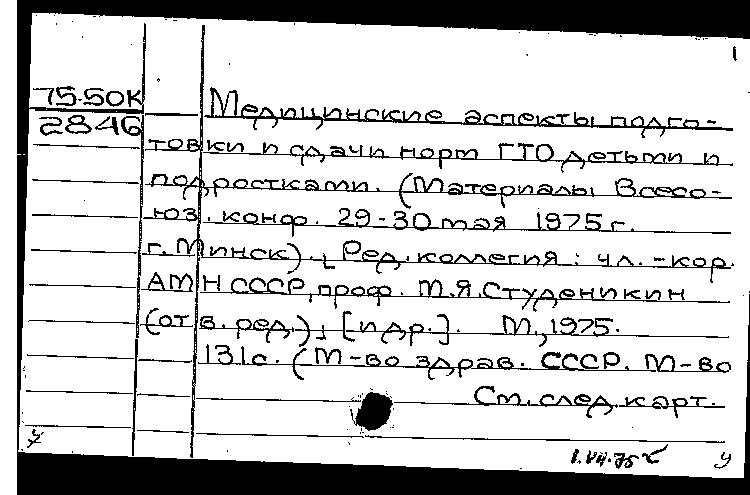 1
75.50К
2846
Медицинские аспекты подго-
товки и сдачи норм ГТО детьми и
подростками. (Материалы Всесо-
юз. конф. 29-30 мая 1975 г.
г. Минск). [Ред. коллегия: чл.-кор.
АМН СССР, проф. М.Я.Студеникин
(отв. ред.), [и др.]. М., 1975.
131с. (М-во здрав. СССР. М-во
См. след. карт.
у